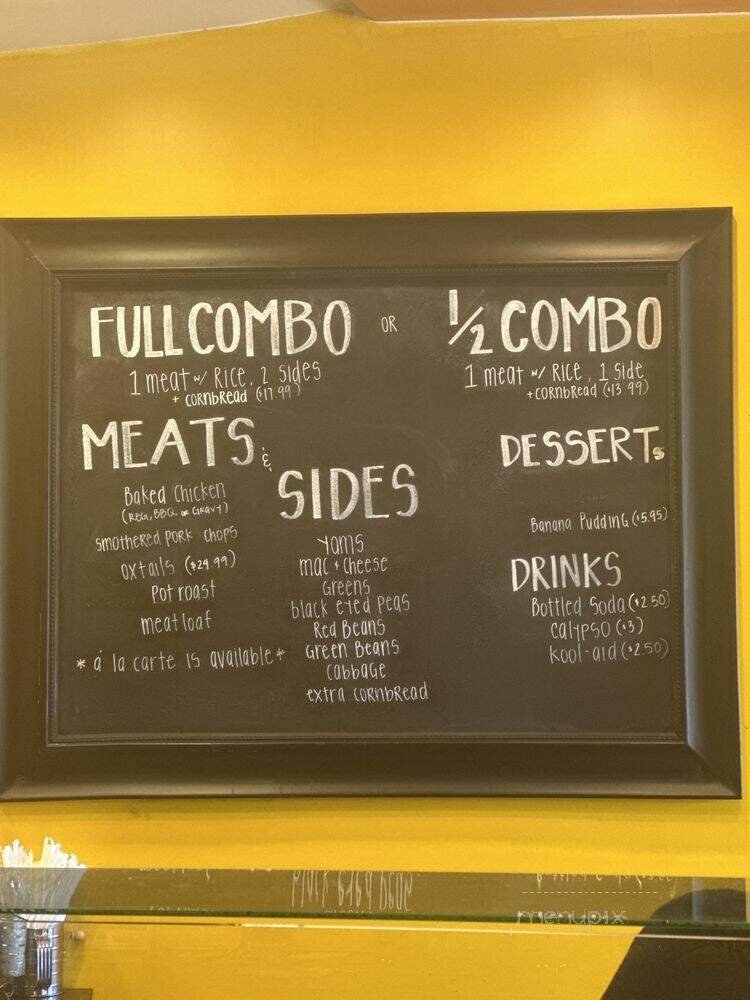 FULL COMBO OR 1/2 COMBO
1 meat w/ Rice, 2 sides
+ CORNBREAD ($17.99)
1 meat w/ Rice, 1 side
+ CORNBREAD ($13.99)
MEATS &
Baked Chicken
(REG, BBQ, or GRAVY)
smothered pork chops
oxtails ($24.99)
pot roast
meatloaf
* á la carte is available *
SIDES
yams
mac & cheese
Greens
black eyed peas
Red Beans
Green Beans
cabbage
extra cornbread
DESSERTs
Banana Pudding ($5.95)
DRINKS
Bottled Soda ($2.50)
calypso ($3)
kool-aid ($2.50)
menupix